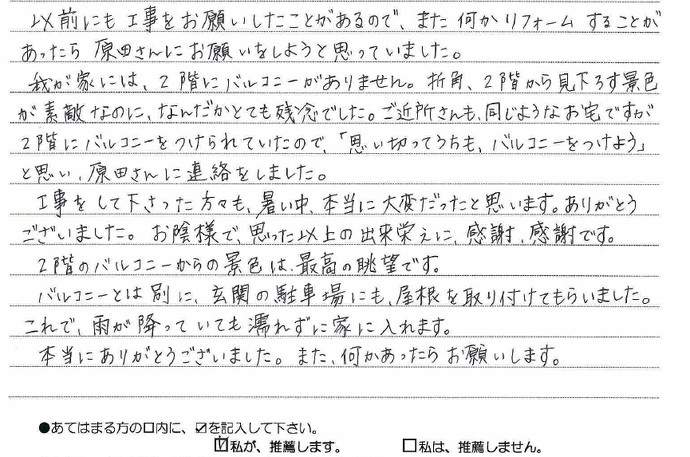 以前にも工事をお願いしたことがあるので、また何かリフォームすることが
あったら原田さんにお願いをしようと思っていました。
我が家には、2階にバルコニーがありません。折角、2階から見下ろす景色
が素敵なのに、なんだかとても残念でした。ご近所さんも、同じようなお宅ですが
2階にバルコニーをつけられていたので、「思い切ってうちも、バルコニーをつけよう」
と思い、原田さんに連絡をしました。
工事をして下さった方々も、暑い中、本当に大変だったと思います。ありがとう
ございました。お陰様で、思った以上の出来栄えに、感謝、感謝です。
2階のバルコニーからの景色は、最高の眺望です。
バルコニーとは別に、玄関の駐車場にも、屋根を取り付けてもらいました。
これで、雨が降っていても濡れずに家に入れます。
本当にありがとうございました。また、何かあったらお願いします。
●あてはまる方の口内に、☑を記入して下さい。
☑私が、推薦します。 □私は、推薦しません。